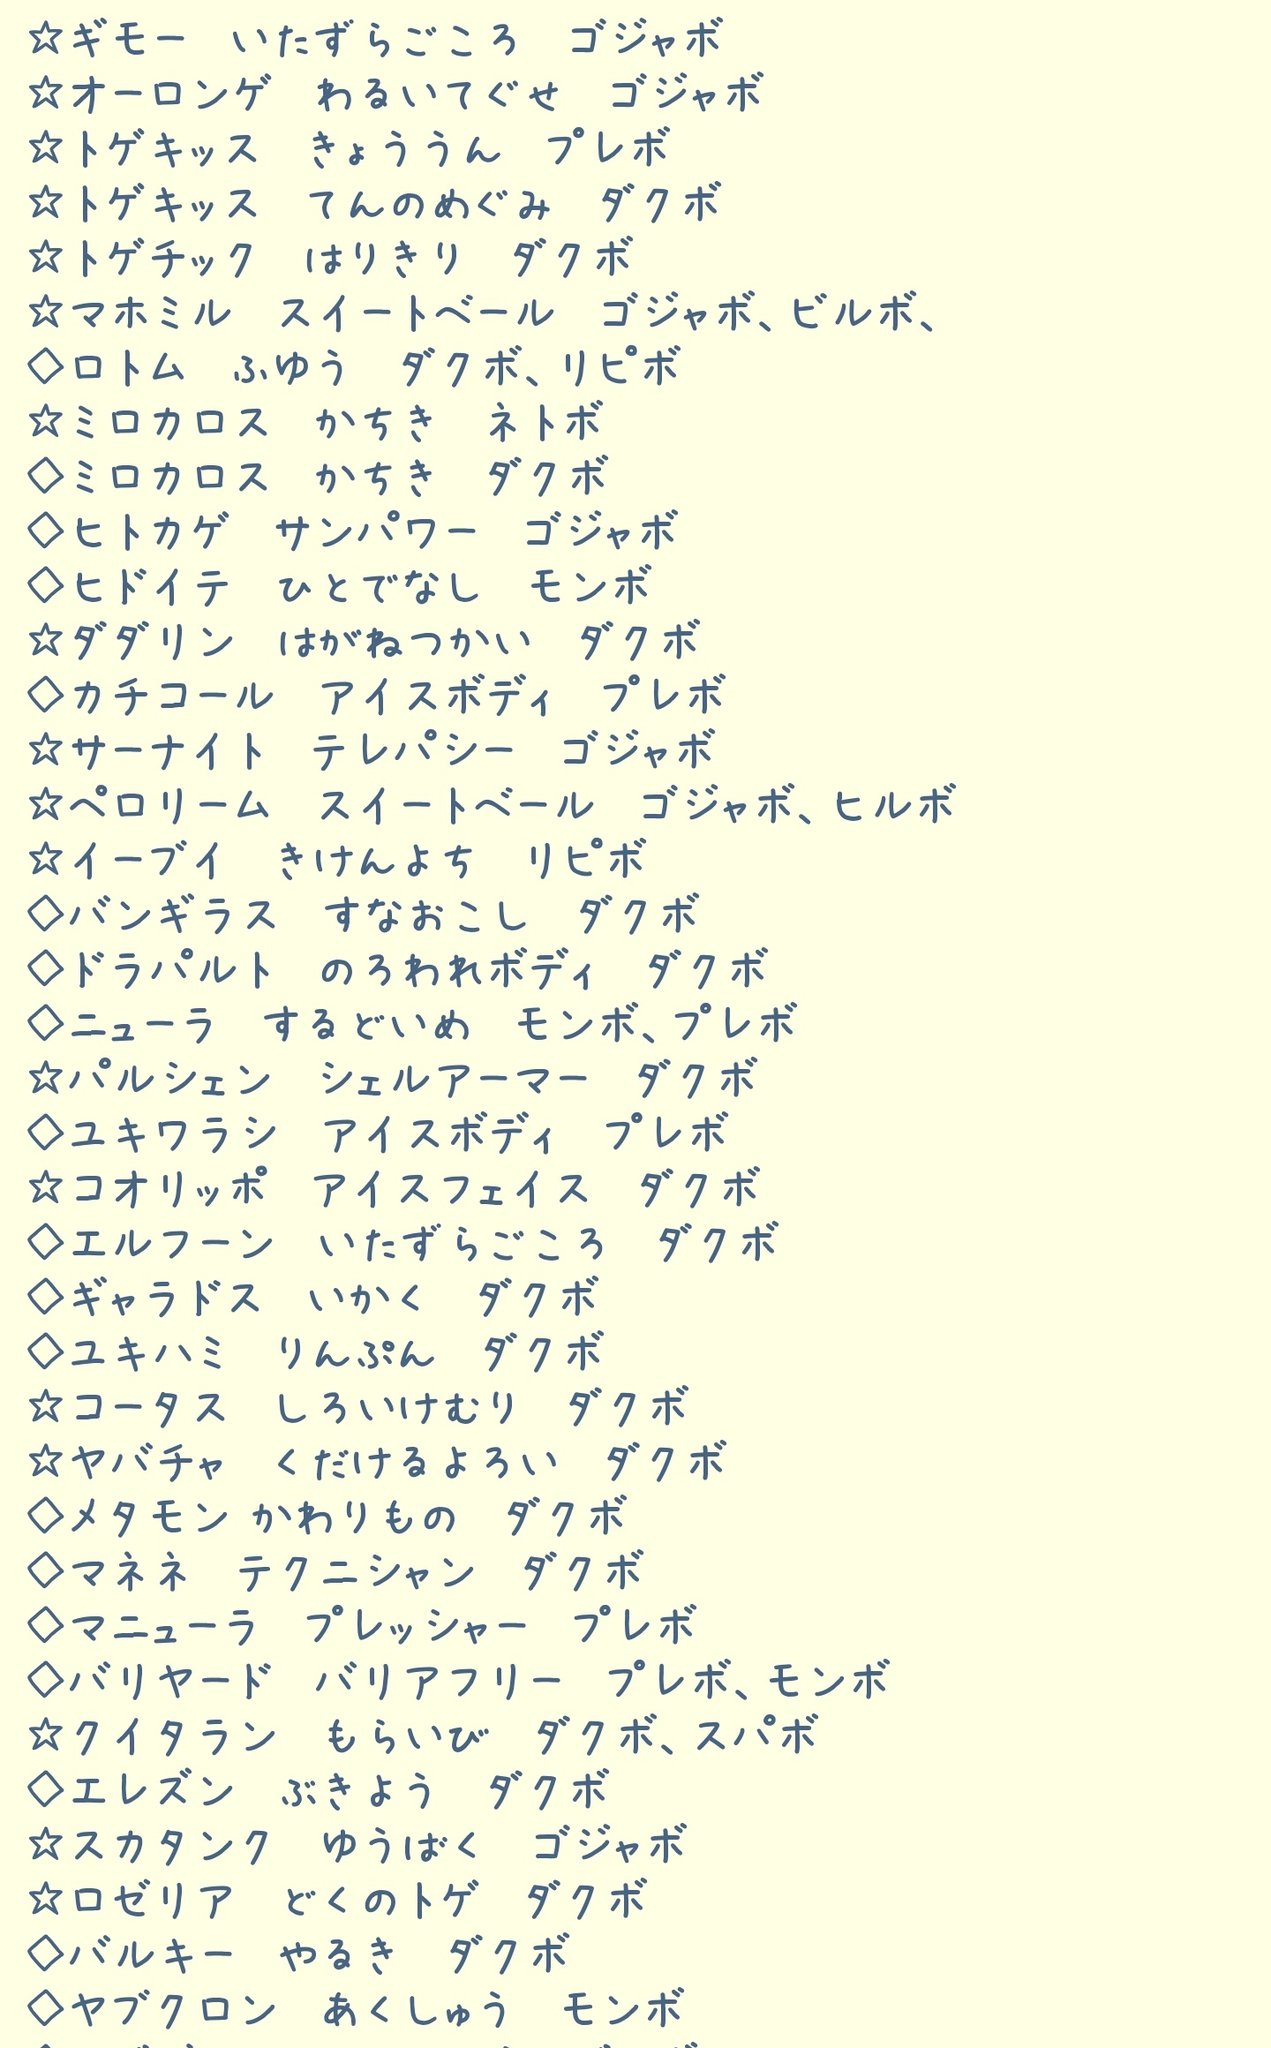 ☆ギモー　いたずらごころ　ゴジャボ
☆オーロンゲ　わるいてぐせ　ゴジャボ
☆トゲキッス　きょううん　プレボ
☆トゲキッス　てんのめぐみ　ダクボ
☆トゲチック　はりきり　ダクボ
☆マホミル　スイートベール　ゴジャボ、ビルボ、
◇ロトム　ふゆう　ダクボ、リピボ
☆ミロカロス　かちき　ネトボ
◇ミロカロス　かちき　ダクボ
◇ヒトカゲ　サンパワー　ゴジャボ
◇ヒドイテ　ひとでなし　モンボ
☆ダダリン　はがねつかい　ダクボ
◇カチコール　アイスボディ　プレボ
☆サーナイト　テレパシー　ゴジャボ
☆ペロリーム　スイートベール　ゴジャボ、ヒルボ
☆イーブイ　きけんよち　リピボ
◇バンギラス　すなおこし　ダクボ
◇ドラパルト　のろわれボディ　ダクボ
◇ニューラ　するどいめ　モンボ、プレボ
☆パルシェン　シェルアーマー　ダクボ
◇ユキワラシ　アイスボディ　プレボ
☆コオリッポ　アイスフェイス　ダクボ
◇エルフーン　いたずらごころ　ダクボ
◇ギャラドス　いかく　ダクボ
◇ユキハミ　りんぷん　ダクボ
☆コータス　しろいけむり　ダクボ
☆ヤバチャ　くだけるよろい　ダクボ
◇メタモン かわりもの　ダクボ
◇マネネ　テクニシャン　ダクボ
◇マニューラ　プレッシャー　プレボ
◇バリヤード　バリアフリー　プレボ、モンボ
☆クイタラン　もらいび　ダクボ、スパボ
◇エレズン　ぶきよう　ダクボ
☆スカタンク　ゆうばく　ゴジャボ
☆ロゼリア　どくのトゲ　ダクボ
◇バルキー　やるき　ダクボ
◇ヤブクロン　あくしゅう　モンボ